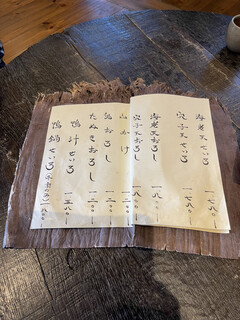 海老天せいろ 一七八〇
穴子天せいろ 一七八〇
海老天おろし 一八〇〇
穴子天おろし 一八〇〇
山かけ 一三〇〇
おろし 一二〇〇
たぬきおろし 一二〇〇
鴨汁せいろ 一五八〇
鴨鍋せいろ